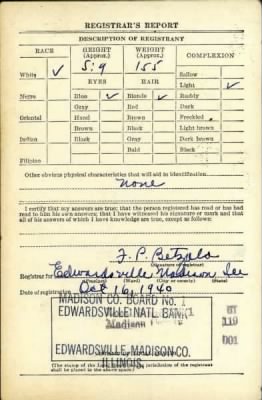 REGISTRAR'S REPORT
DESCRIPTION OF REGISTRANT
RACE HEIGHT (Approx.) WEIGHT (Approx.) COMPLEXION
White ✓ 5:9 155 Sallow
EYES HAIR Light ✓
Negro Blue ✓ Blonde ✓ Ruddy
Gray Red Dark
Oriental Hazel Brown Freckled
Brown Black Light brown
Indian Black Gray Dark brown
Bald Black
Filipino
Other obvious physical characteristics that will aid in identification
None
I certify that my answers are true; that the person registered has read or has had
read to him his own answers; that I have witnessed his signature or mark and that
all of his answers of which I have knowledge are true, except as follows:
(Signature of registrar)
Registrar for Edwardsville Madison Ill
(Precinct) (Ward) (City or county) (State)
Date of registration Oct 16, 1940
MADISON CO. BOARD No. 1
EDWARDSVILLE NATL. BANK
Madison
119
001
EDWARDSVILLE, MADISON CO.
ILLINOIS.
jurisdiction of the registrant
shall be placed in the above space.)